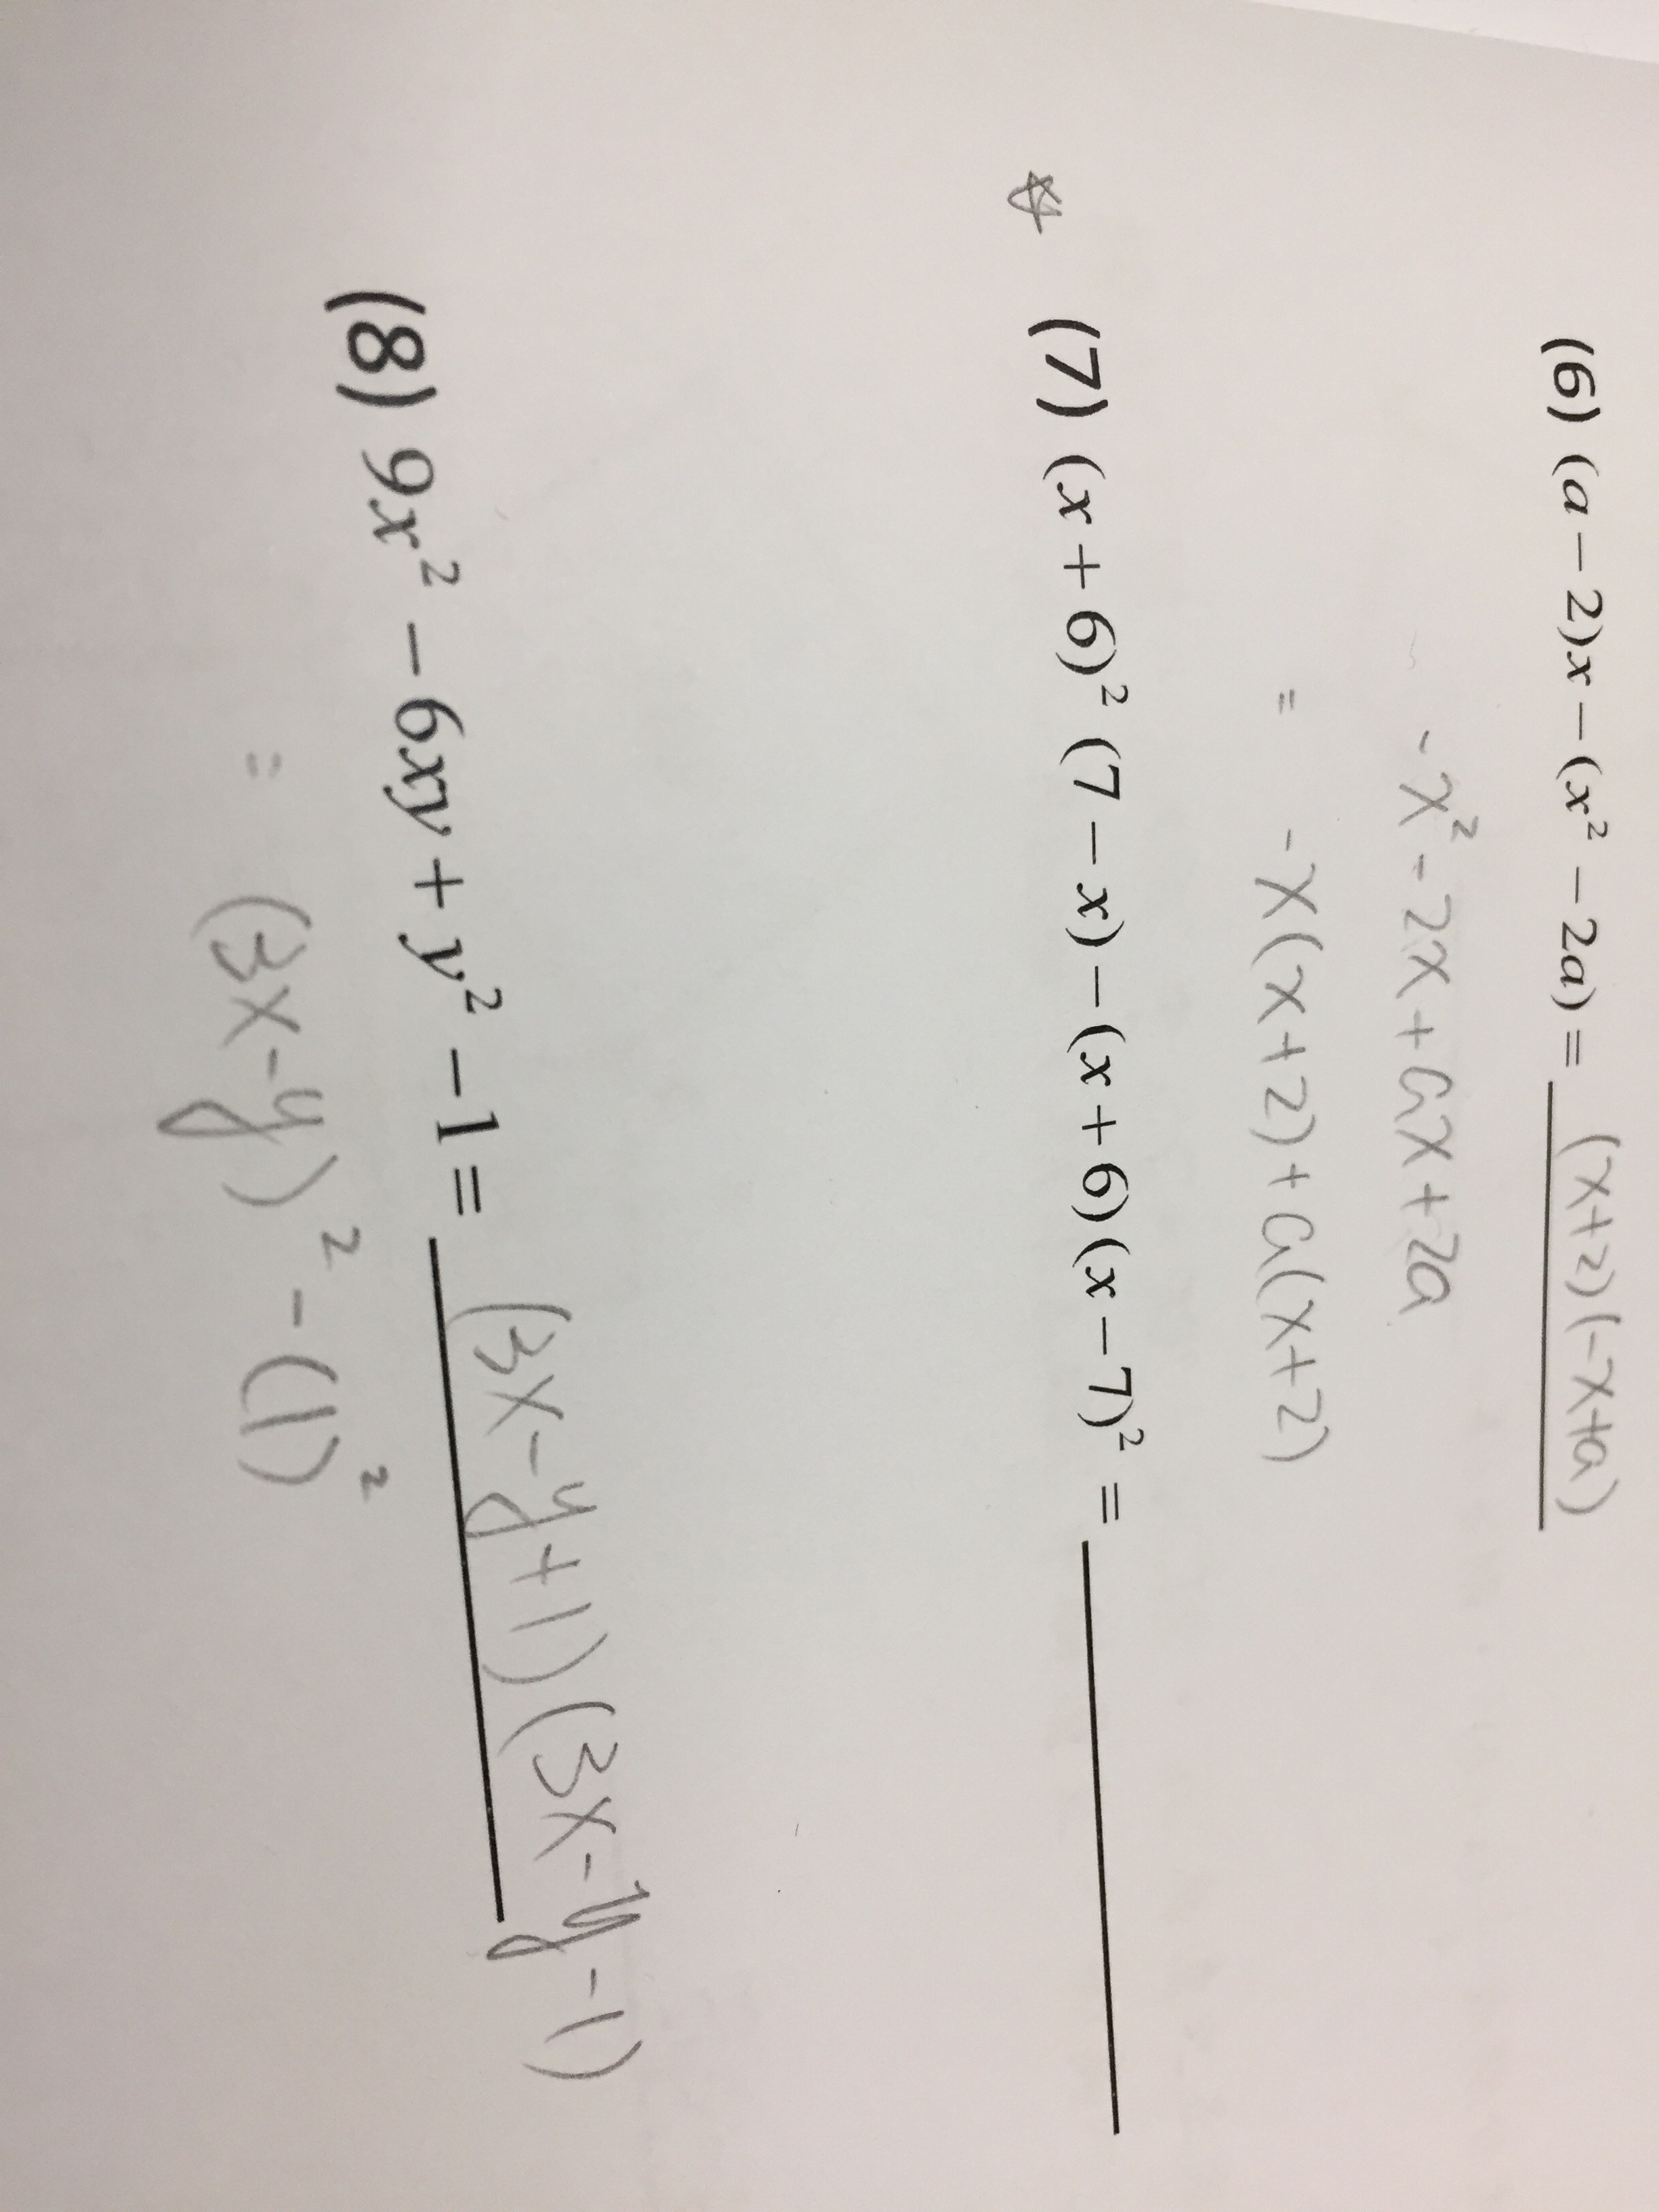 (6) (a − 2)x − (x² − 2a) = (x+2)(-x+a)
- x² - 2x + ax + 2a
= -x(x+2) + a(x+2)
(7) (x + 6)² (7 − x) − (x + 6)(x − 7)² =
(8) 9x² − 6xy + y² − 1 = (3x-y+1)(3x-y-1)
= (3x-y)² - (1)²